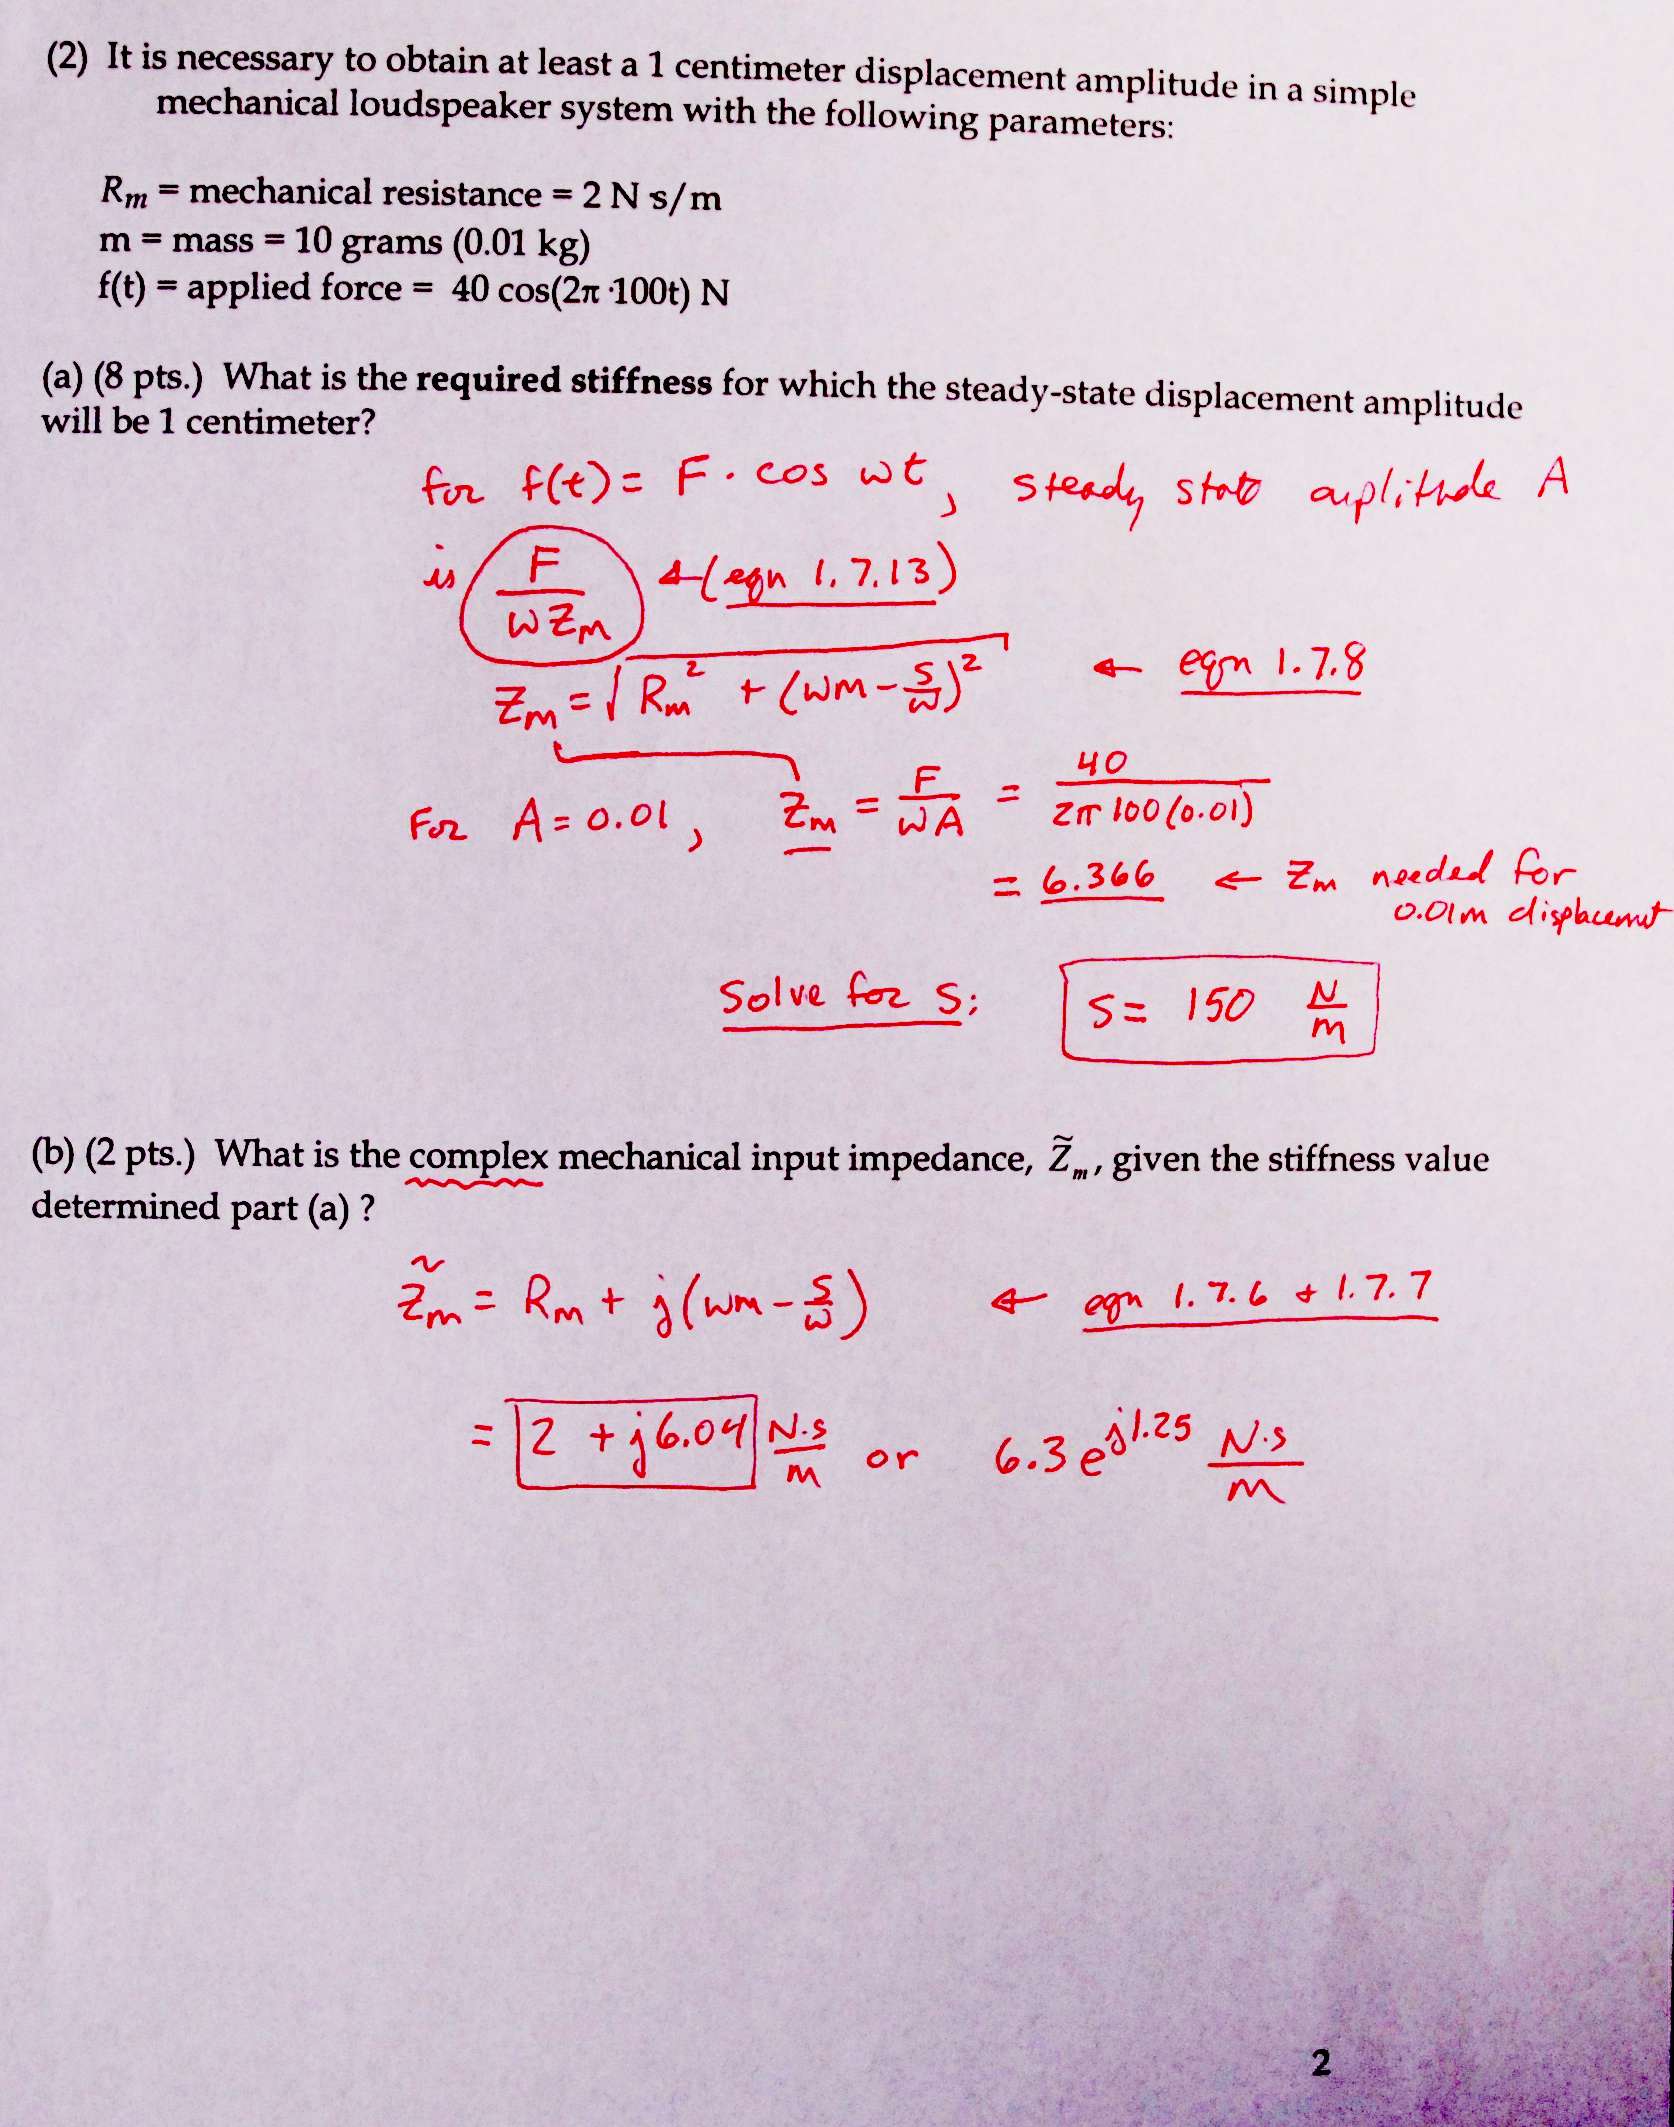 (2) It is necessary to obtain at least a 1 centimeter displacement amplitude in a simple
mechanical loudspeaker system with the following parameters:
Rm = mechanical resistance = 2 N s/m
m = mass = 10 grams (0.01 kg)
f(t) = applied force = 40 cos(2π ·100t) N
(a) (8 pts.) What is the required stiffness for which the steady-state displacement amplitude
will be 1 centimeter?
for f(t) = F · cos ωt, steady state amplitude A
is F/(ωZm) ← (eqn 1.7.13)
Zm = √(Rm² + (ωm - S/ω)²) ← eqn 1.7.8
For A = 0.01, Zm = F/(ωA) = 40/(2π 100 (0.01))
= 6.366 ← Zm needed for
0.01m displacemnt
Solve for S: S = 150 N/m
(b) (2 pts.) What is the complex mechanical input impedance, Z̃m, given the stiffness value
determined part (a) ?
Z̃m = Rm + j(ωm - S/ω) ← eqn 1.7.6 + 1.7.7
= 2 + j6.04 N·s/m or 6.3 e^j1.25 N·s/m
2